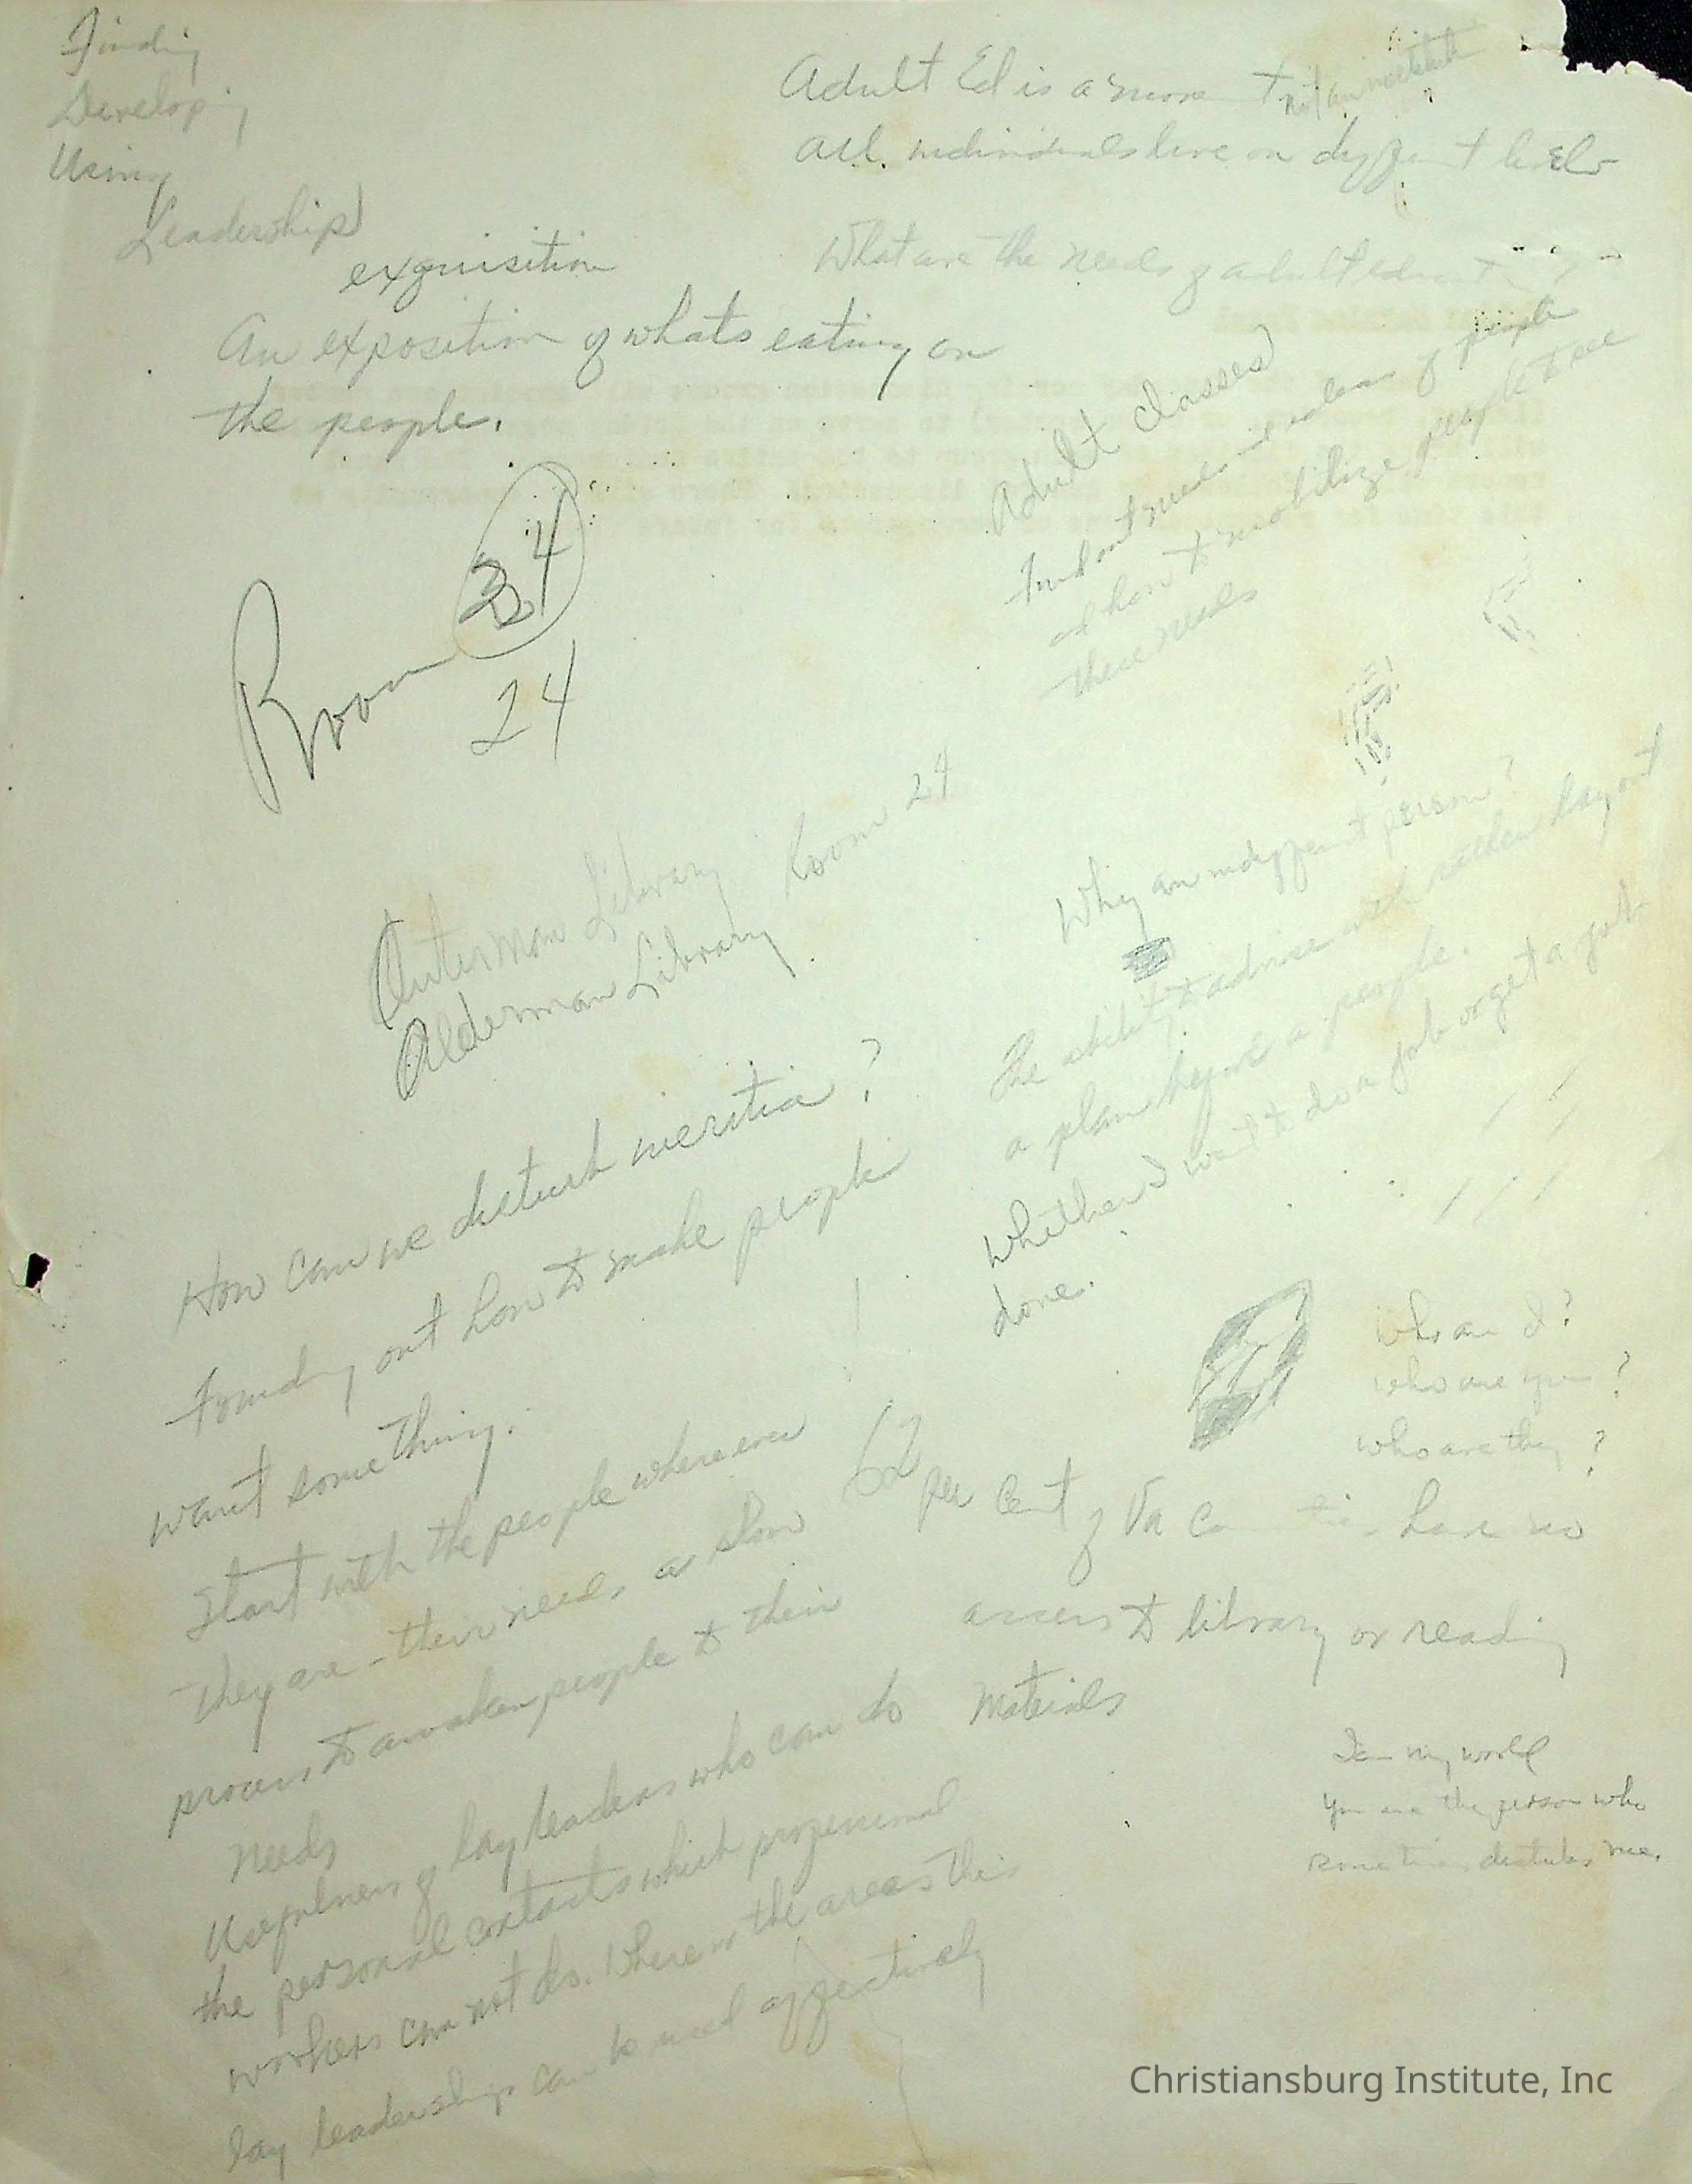 Finding
Developing
Using
Leadership
exquisition
An exposition of whats eating on
the people.
Adult Ed is a movement not an institute
All individuals live on different levels
What are the needs of adult
Adult Classes
Find out needs and of people
and how to mobilize people to see
these needs
Room 34
24
Outerman Library Room 24
Alderman Library
Why an indifferent person?
The ability to advise with rather lay out
a plan before a people.
Whether I want to do a job or get a job
done.
How can we disturb inerstia?
Founding out how to make people
want something.
Start with the people where ever
they are - their needs a slow
process to awaken people to their
needs
Usefulness of lay leaders who can do
the personal contacts which professional
workers can not do. Where are the areas this
lay leadership can be used effectively
Who am I?
who are you?
who are they?
62 per cent of Va Counties have no
access to library or reading
Materials
I am my world
You are the person who
sometimes disturbs me.
Christiansburg Institute, Inc